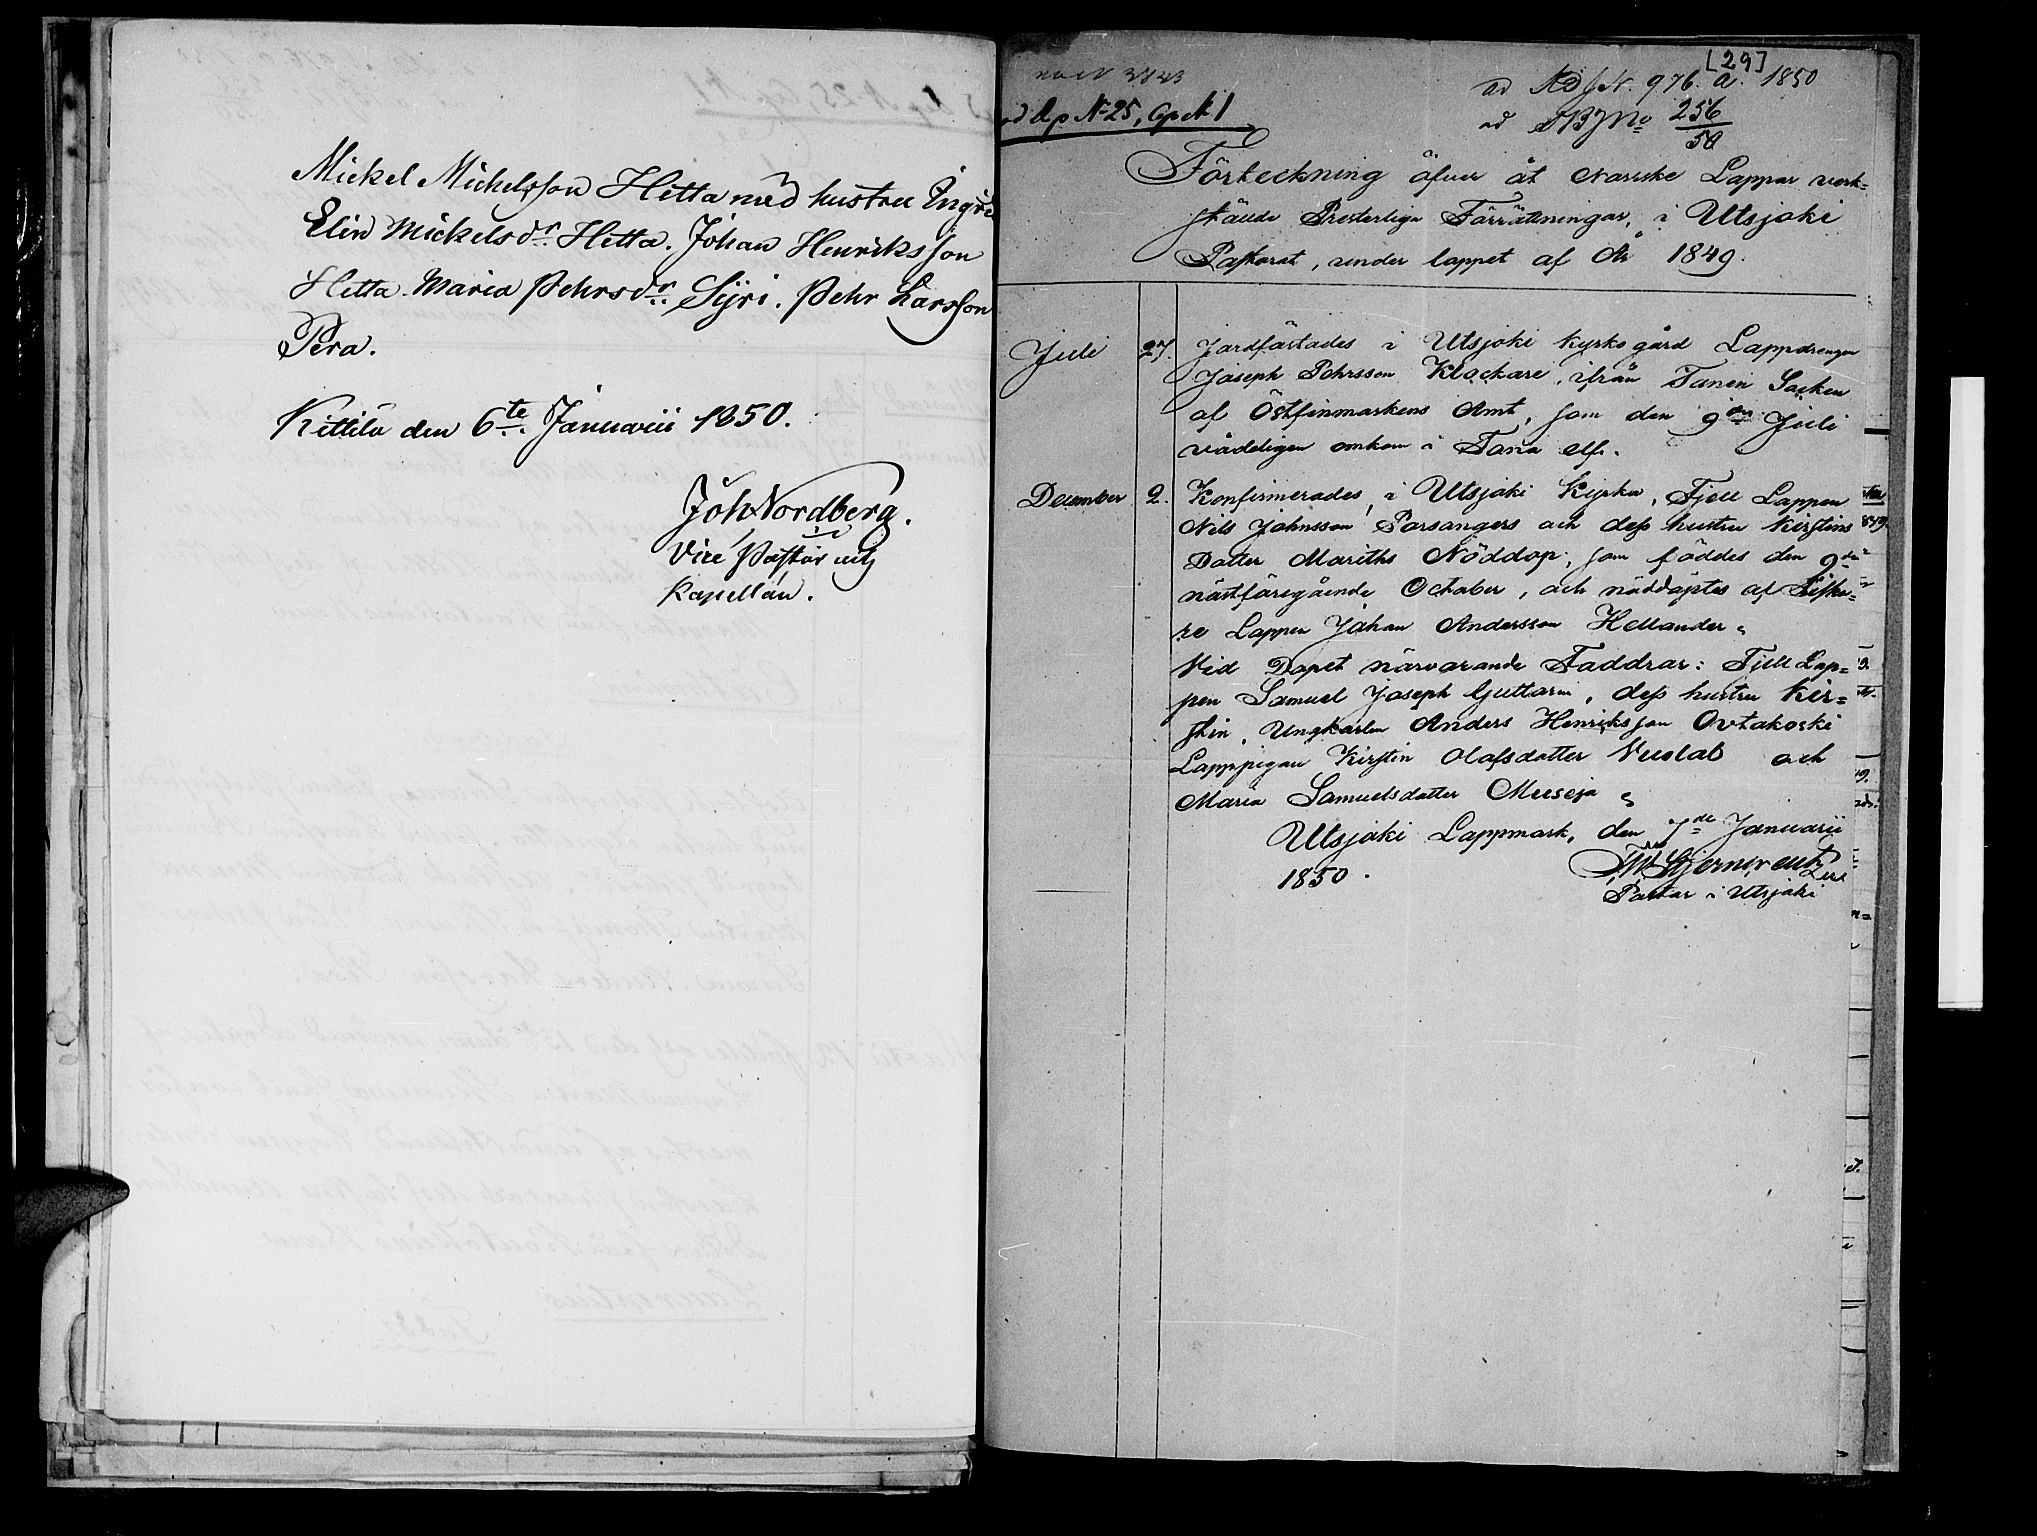 Mickel Michelsson Hetta med hustru Ingri
Elin Mickelsdr. Hetta. Johan Henriksson
Hetta. Maria Pehrsdr. Sijri. Pehr Larsson
Pera.
Kittilä den 6te Januarii 1850.
Joh Nordberg.
Vice Pastor och
Kapellan.
[29]
ad N 976. a. 1850
ad No 256/50
No 25, Cap N 1
Förteckning öfver åt Norrske Lappar verk=
stäude Presterliga Förrättningar, i Utsjoki
Pastorat, under loppet af År 1849.
Juli 27. Jordfästades i Utsjoki Kyrkogård Lappdrengen
Joseph Pehrsson Klockare, ifrån Tanen Socken
af Östfinmarkens Amt, som den 9de Juli
vådeligen omkom i Tana elf.
December 2. Konfirmerades, i Utsjoki Kyrka, Fjell Lappen
Nils Johnsson Porsangers och dess hustru Kirstins
Datter Mariths Nöddop, som föddes den 9de
nästföregående October, och nöddöptes af Fiska=
re Lappen Johan Andersson Hellander.
Vid Dopet närvarande Faddrar: Fjell Lap=
pen Samuel Joseph Guttorm, dess hustru Kir=
stin, Ungkarlen Anders Henriksson Ovtakoski
Lapppigan Kirstin Olafsdatter Vuolab och
Maria Samuelsdatter Museja
Utsjoki Lappmark, den 7de Januarii
1850.
Stjerncreutz
Pastor i Utsjoki